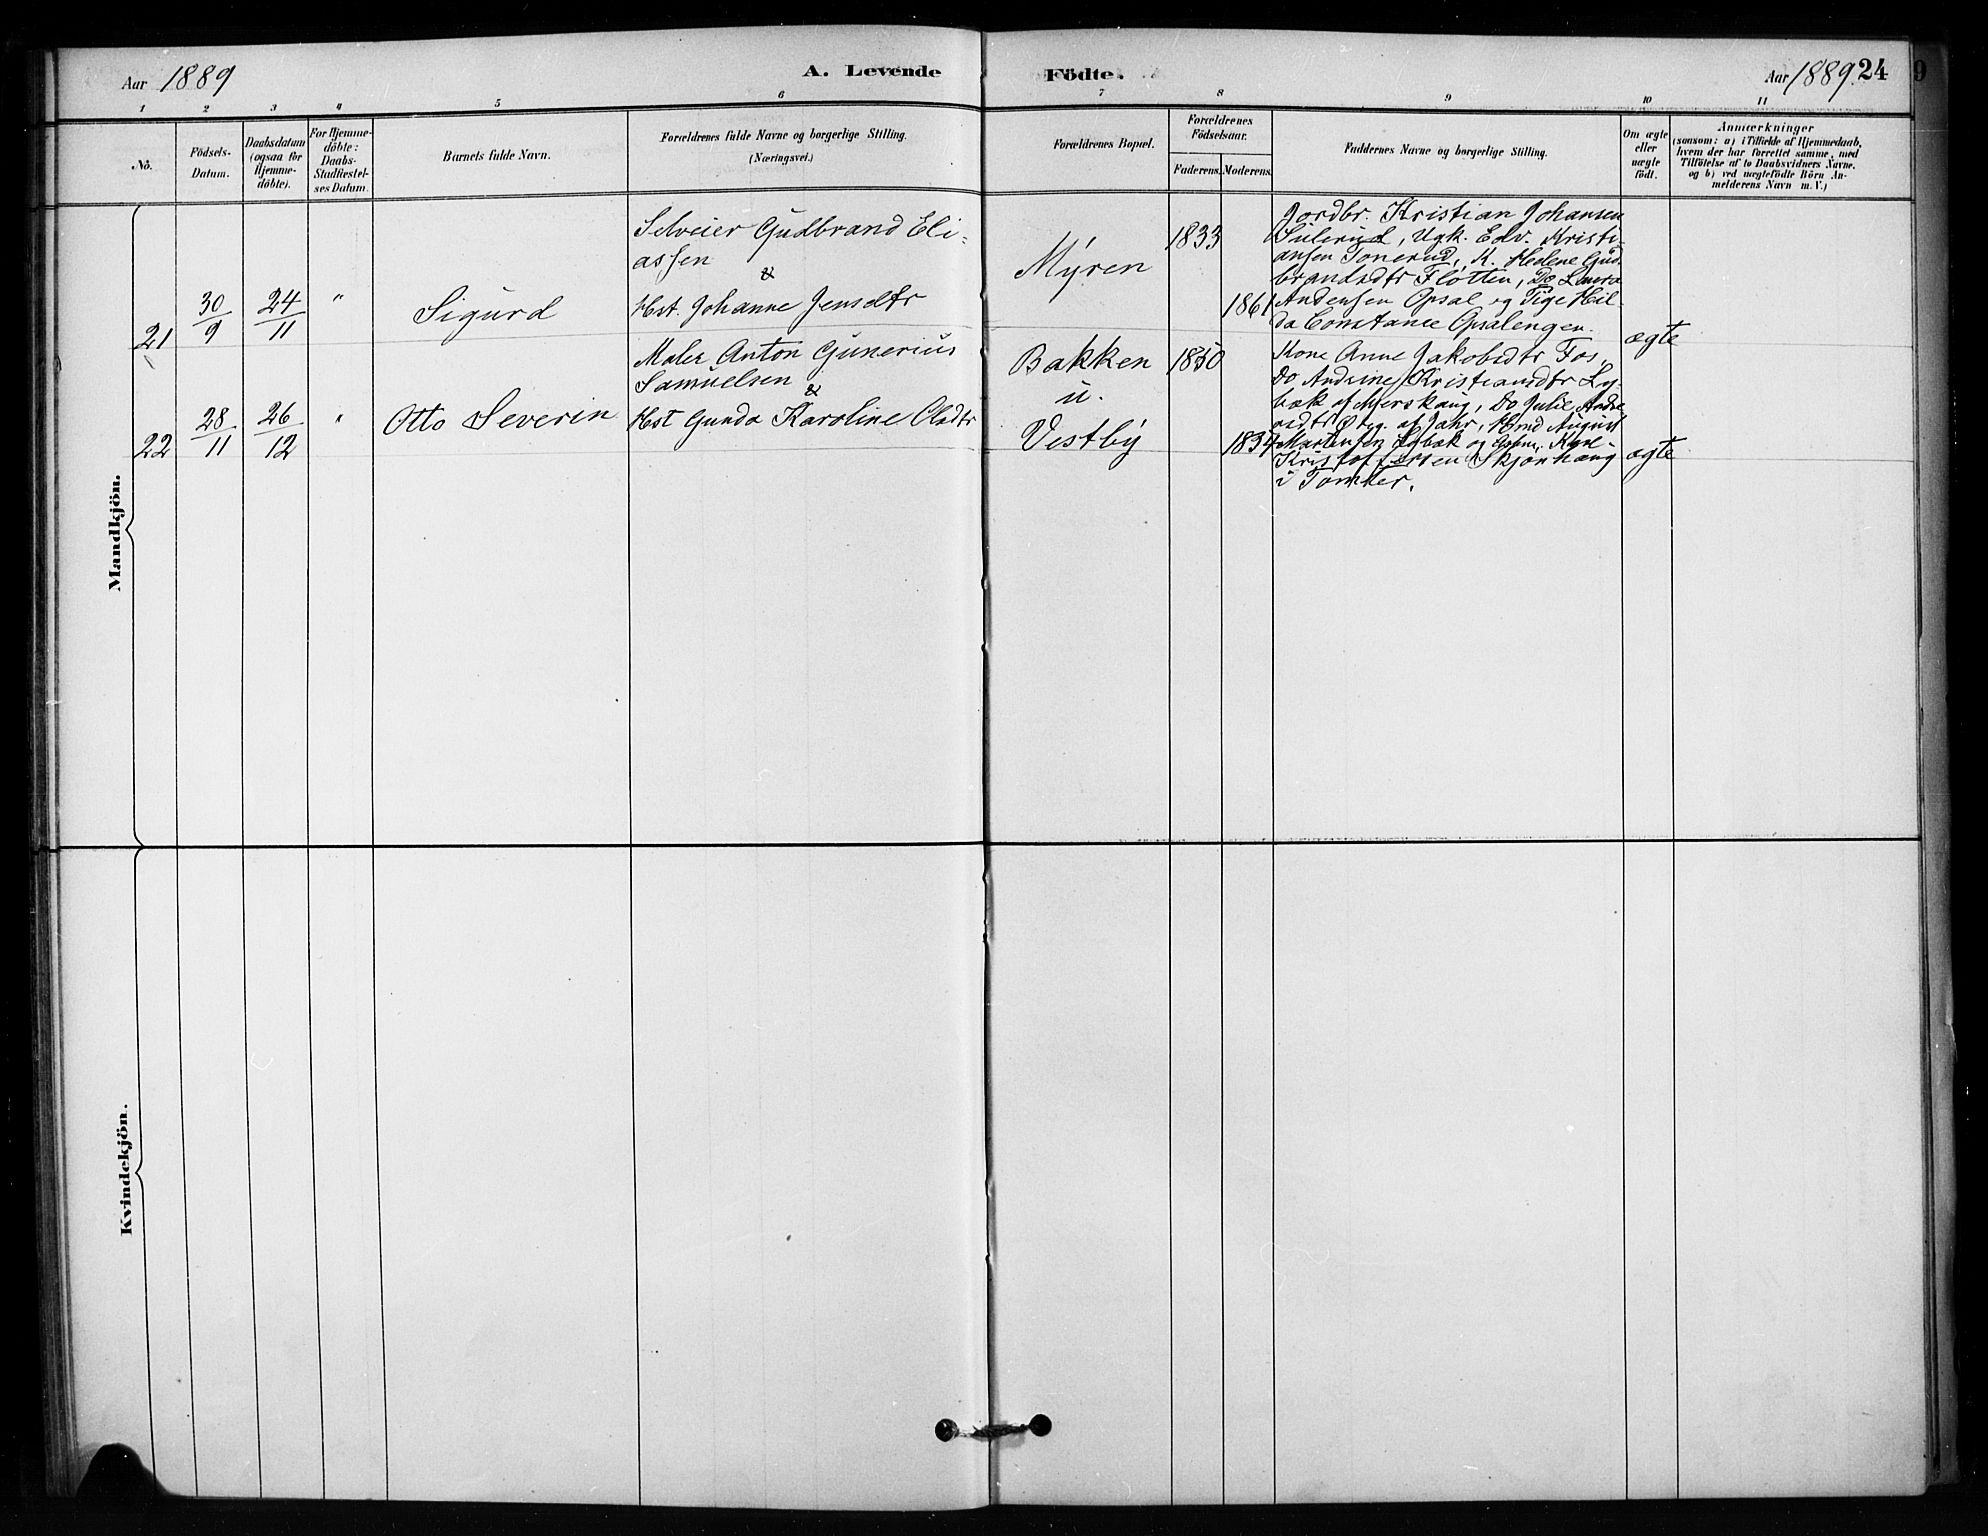 Aar 1889
A. Levende
Födte.
Aar 1889. 24
1 2 3 4 5 6 7 8 9 10 11
No.
Födsels-
Datum.
Daabsdatum
(ogsaa for
Hjemme-
döbte).
For Hjemme-
döbte:
Daabs-
Stadfæstel-
ses Datum.
Barnets fulde Navn.
Forældrenes fulde Navne og borgerlige Stilling.
(Næringsvei.)
Forældrenes Bopæl.
Forældrenes
Födselsaar.
Faderens. Moderens.
Faddernes Navne og borgerlige Stilling.
Om ægte
eller
uægte
födt.
Anmærkninger
(saasom: a) i Tilfælde af Hjemmedaab,
hvem der har forrettet samme, med
Tilföielse af to Daabsvidners Navne,
og b) ved uægtefödte Börn An-
melderens Navn m. V.)
Mandkjön.
21
30/9
24/11
"
Sigurd
Selveier Gudbrand Eli-
assen
&
Hst. Johanne Jensdtr
Myren
1833
1861
Jordbr. Kristian Johansen
Sulerud, Ugk. Edv. Kristi-
ansen Tonerud, K. Helene Gud-
brandsdtr Fløtten, Do Laura
Andensen Opsal og Pige Hil-
da Constance Opsalengen.
ægte
22
28/11
26/12
"
Otto Severin
Maler Anton Gunerius
Samuelsen
&
Hst Gunda Karoline Olsdtr
Bakken
u.
Vestby
1850
1834
Kone Anne Jakobsdtr Fos,
Do Andrine Kristiansdtr Ly-
bæk af Mjerskaug, Do Julie Andre
asdtr Øieg. af Jahr, Ugmd August
Martinsen Lybæk og Karl
Kristoffersen Skjønhaug
i Tomter.
ægte
Kvindekjön.